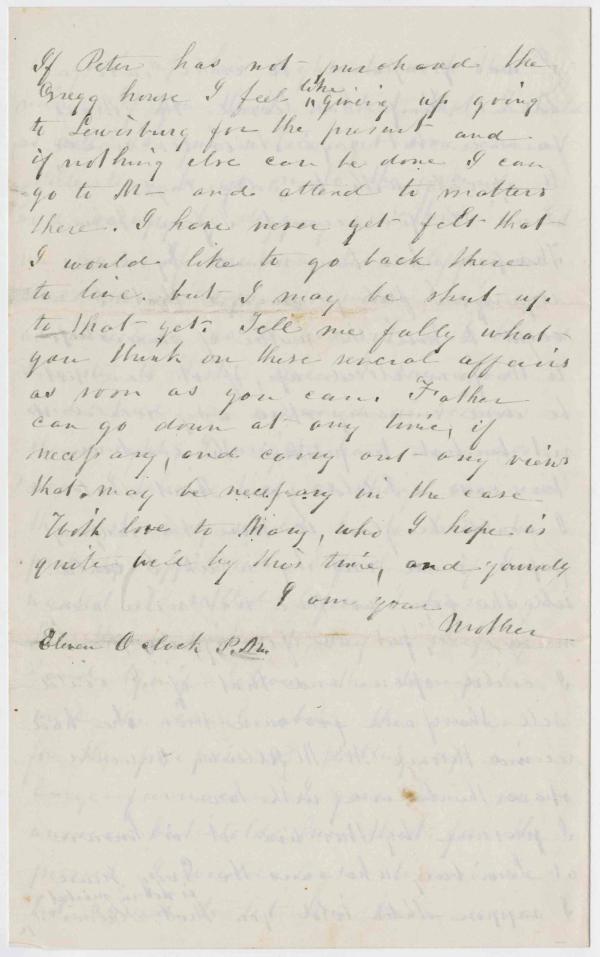 If Peter has not purchased the
Gregg house I feel like giving up going
to Lewisburg for the present and
if nothing else can be done I can
go to M— and attend to matters
there. I have never yet felt that
I would like to go back there
to live. but I may be shut up
to that yet. Tell me fully what
you think on these several affairs
as soon as you can. Father
can go down at any time, if
necessary, and carry out any views
that may be necessary in the case
With love to Mary, who I hope is
quite well by this time, and yourself
I am your
Mother
Eleven O clock P.M.